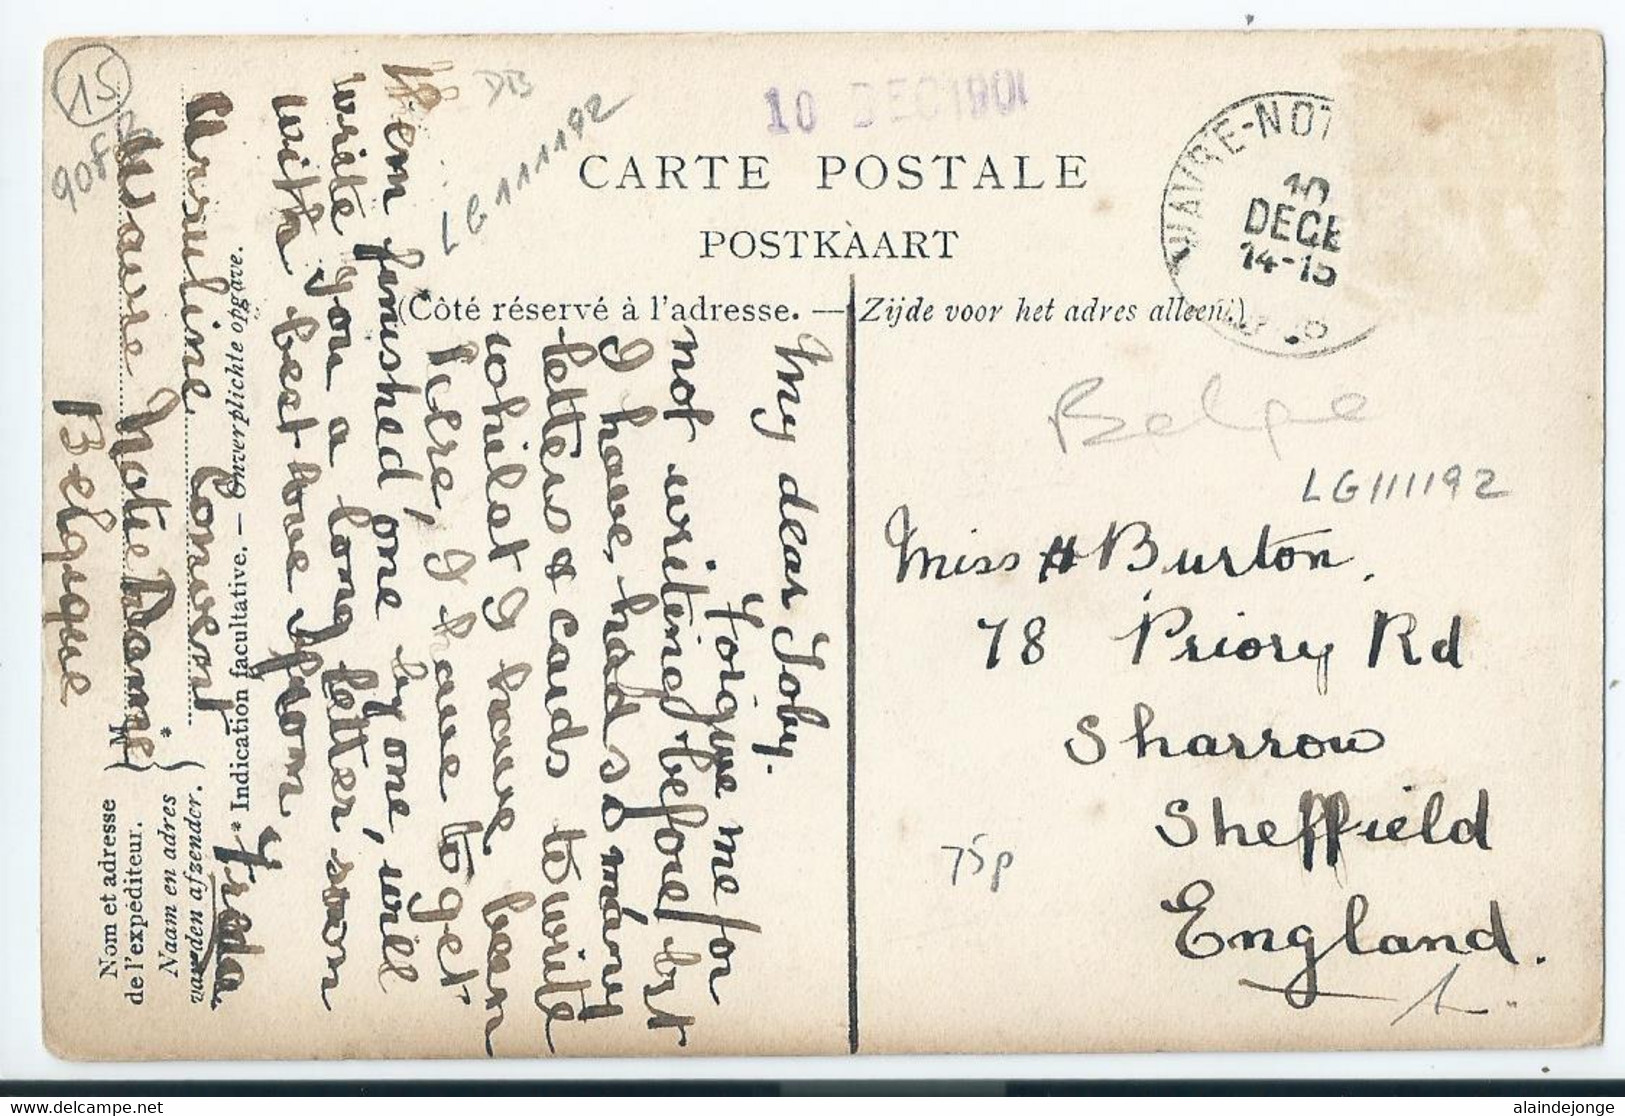 15
90F
DB
LG111192
10 DEC 190
CARTE POSTALE
POSTKAART
(Côté réservé à l'adresse. — Zijde voor het adres alleen.)
WAVRE-NOT
10
DECE
14-15
Belge
LG111192
Miss H Burton,
78 Priory Rd
Sharrow
Sheffield
England.
75p
My dear Toby.
Forgive me for
not writeing before, but
I have had so many
letters & cards to write
whilst I have been
here, I have to get
them finished, one by one, will
write you a long letter soon
with best love from
Freda
Ursuline Convent
Wavre Notre Dame
Belgique
Nom et adresse
de l'expéditeur.
Naam en adres
van den afzender.
M
*
* Indication facultative. — Onverplichte opgave.
alaindejonge